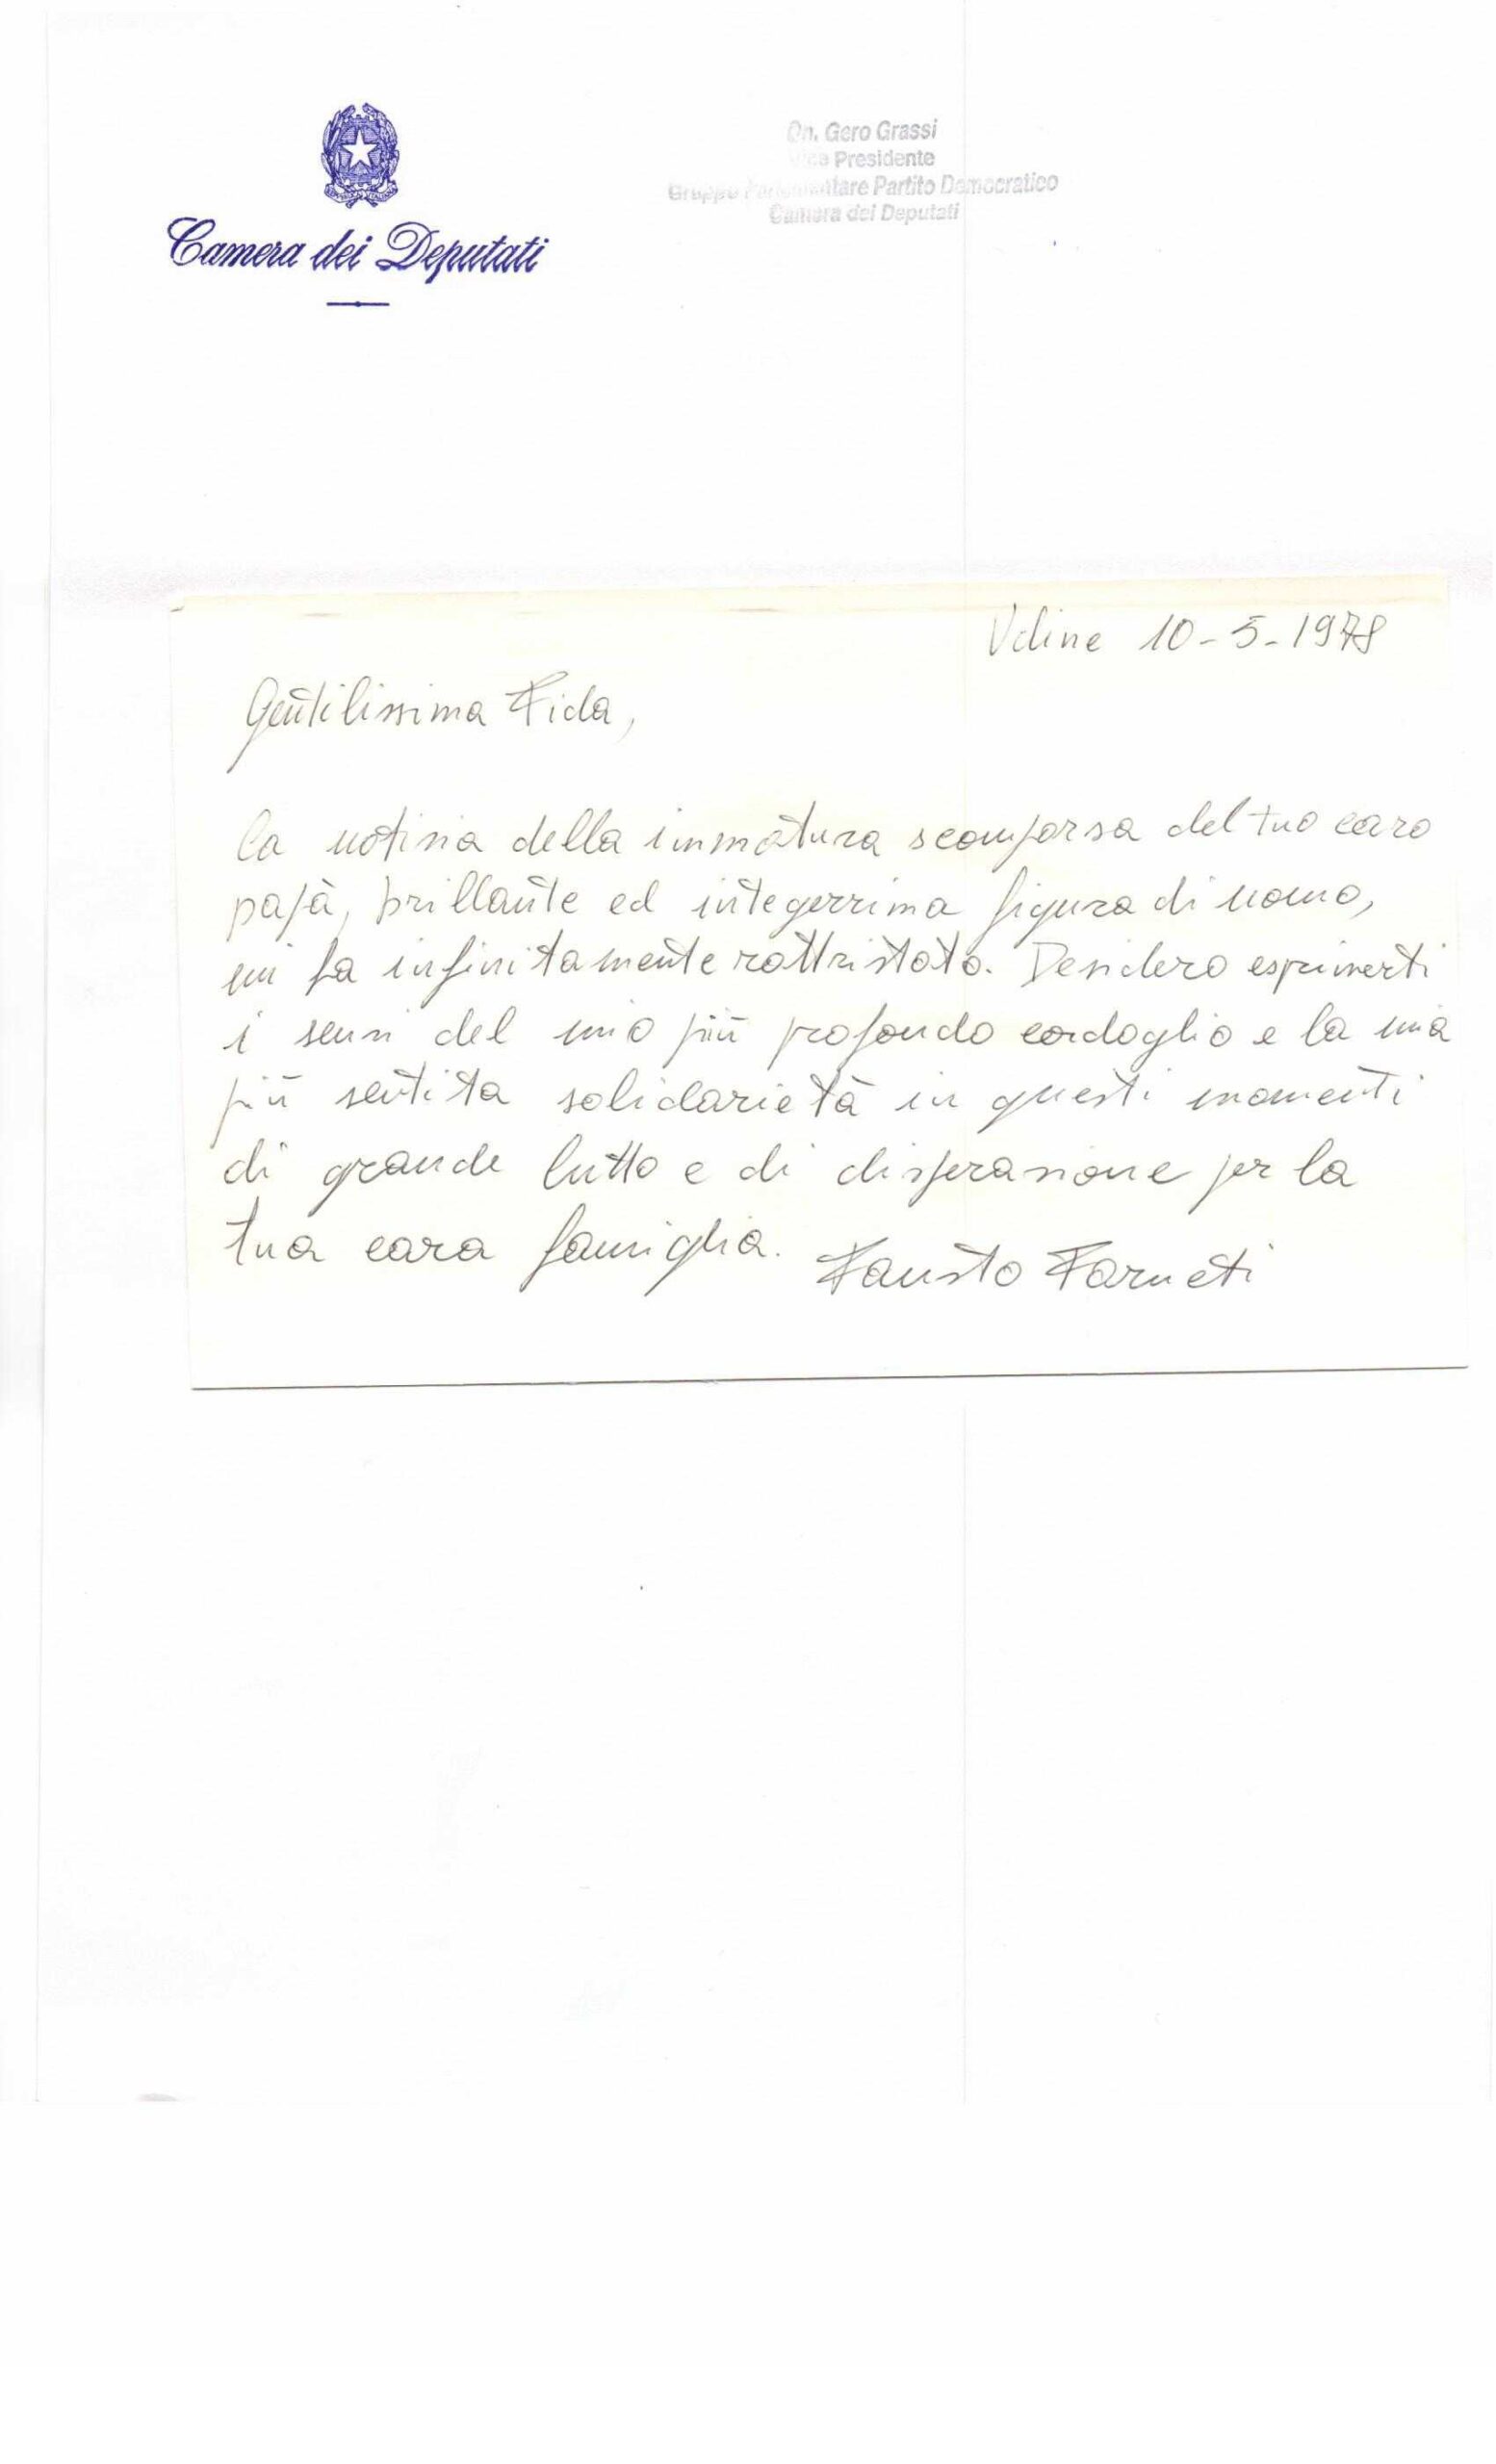 On. Gero Grassi
Vice Presidente
Gruppo Parlamentare Partito Democratico
Camera dei Deputati
Camera dei Deputati
Udine 10-5-1978
Gentilissima Fida,
la notizia della immatura scomparsa del tuo caro
papà, brillante ed integerrima figura di uomo,
mi ha infinitamente rattristato. Desidero esprimerti
i sensi del mio più profondo cordoglio e la mia
più sentita solidarietà in questi momenti
di grande lutto e di disperazione per la
tua cara famiglia.
Fausto Farneti